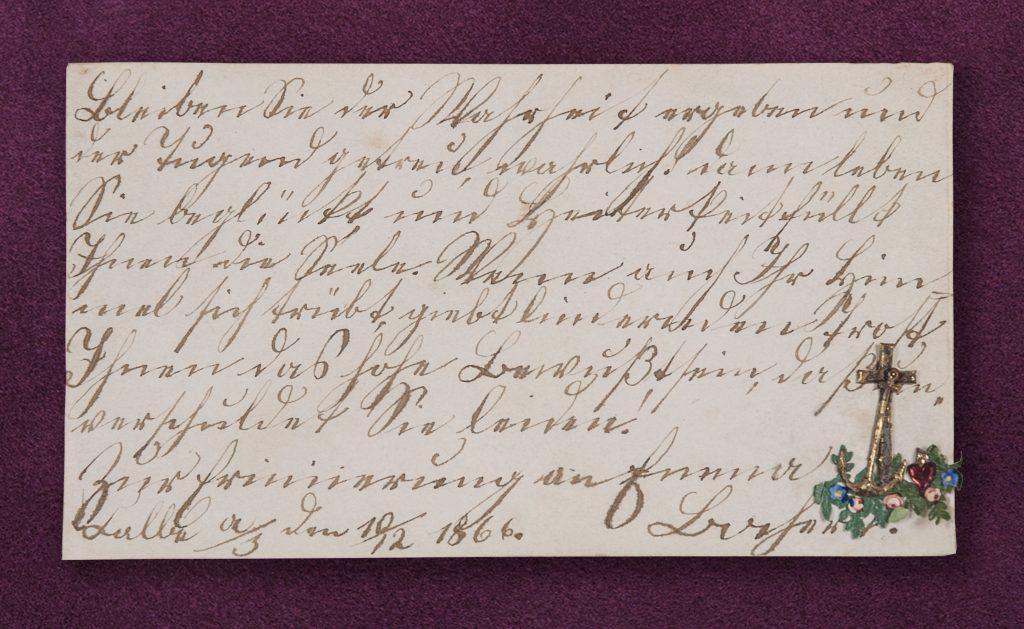 Bleiben Sie der Wahrheit ergeben und
der Tugend getreu, wahrlich! dann leben
Sie beglückt, und Heiterkeit füllt
Ihnen die Seele. Wenn auch Ihr Him-
mel sich trübt, giebt lindernden Trost,
Ihnen das hohe Bewußtsein, daß un-
verschuldet Sie leiden!
Zur Erinnerung an Emma
Calbe a/S den 18/12 1866.